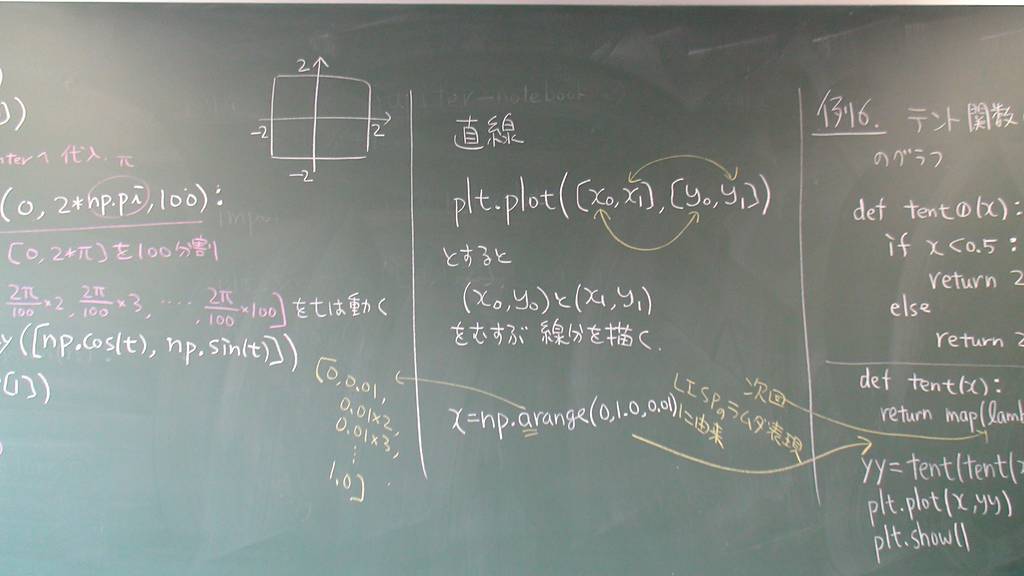 ])
nterへ 代入. π
(0, 2*np.pi, 100):
[0, 2*π]を100分割
2π/100 *2, 2π/100 *3, ‥‥, 2π/100 *100] をtは動く
y([np.cos(t), np.sin(t)])
[1])
2
-2
2
-2
[0, 0.01,
0.01×2,
0.01×3,
⋮
1.0]
直線
plt.plot([x0,x1],[y0,y1])
とすると
(x0,y0)と(x1,y1)
をむすぶ 線分を描く.
x=np.arange(0,1.0,0.01)
LISPのラムダ表現
に由来
次回
例16. テント関数
のグラフ
def tent①(x):
if x<0.5:
return 2
else
return 2
def tent(x):
return map(lamb
yy=tent(tent(x
plt.plot(x,yy)
plt.show()